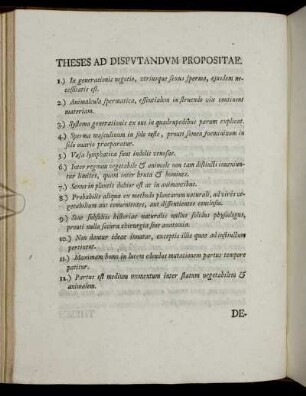 THESES AD DISPVTANDVM PROPOSITAE.
1.) In generationis negotio, utriusque sexus sperma, ejusdem ne-
cessitatis est.
2.) Animalcula spermatica, essentialem in struendo viso continent
materiam.
3.) Systema generationis ex ovi in quadrupedibus parum explicat.
4.) Sperma masculinum in solo teste, prout semen foemininum in
solo ovario praeparatur.
5.) Vasa lymphatica sunt indolis venosae.
6.) Inter regnum vegetabile & animale non tam distincti inveniun-
tur limites, quam inter bruta & homines.
7.) Sexus in plantis dubius est ac in animantibus.
8.) Probabile aliquo ex methodo plantarum naturali, ad vires ve-
getabilium aut convenientes, aut dissentientes conclusio.
9.) Sine subsidiis historiae naturalis nullus solidus physiologus,
prout nulla secura chirurgia sine anatomia.
10.) Non dantur ideae innatae, exceptis illis quae ad instinctum
pertinent.
11.) Maximam homo in lucem edendus mutationem partus tempore
patitur.
12.) Partus est medium momentum inter statum vegetabilem &
animalem.
DE-